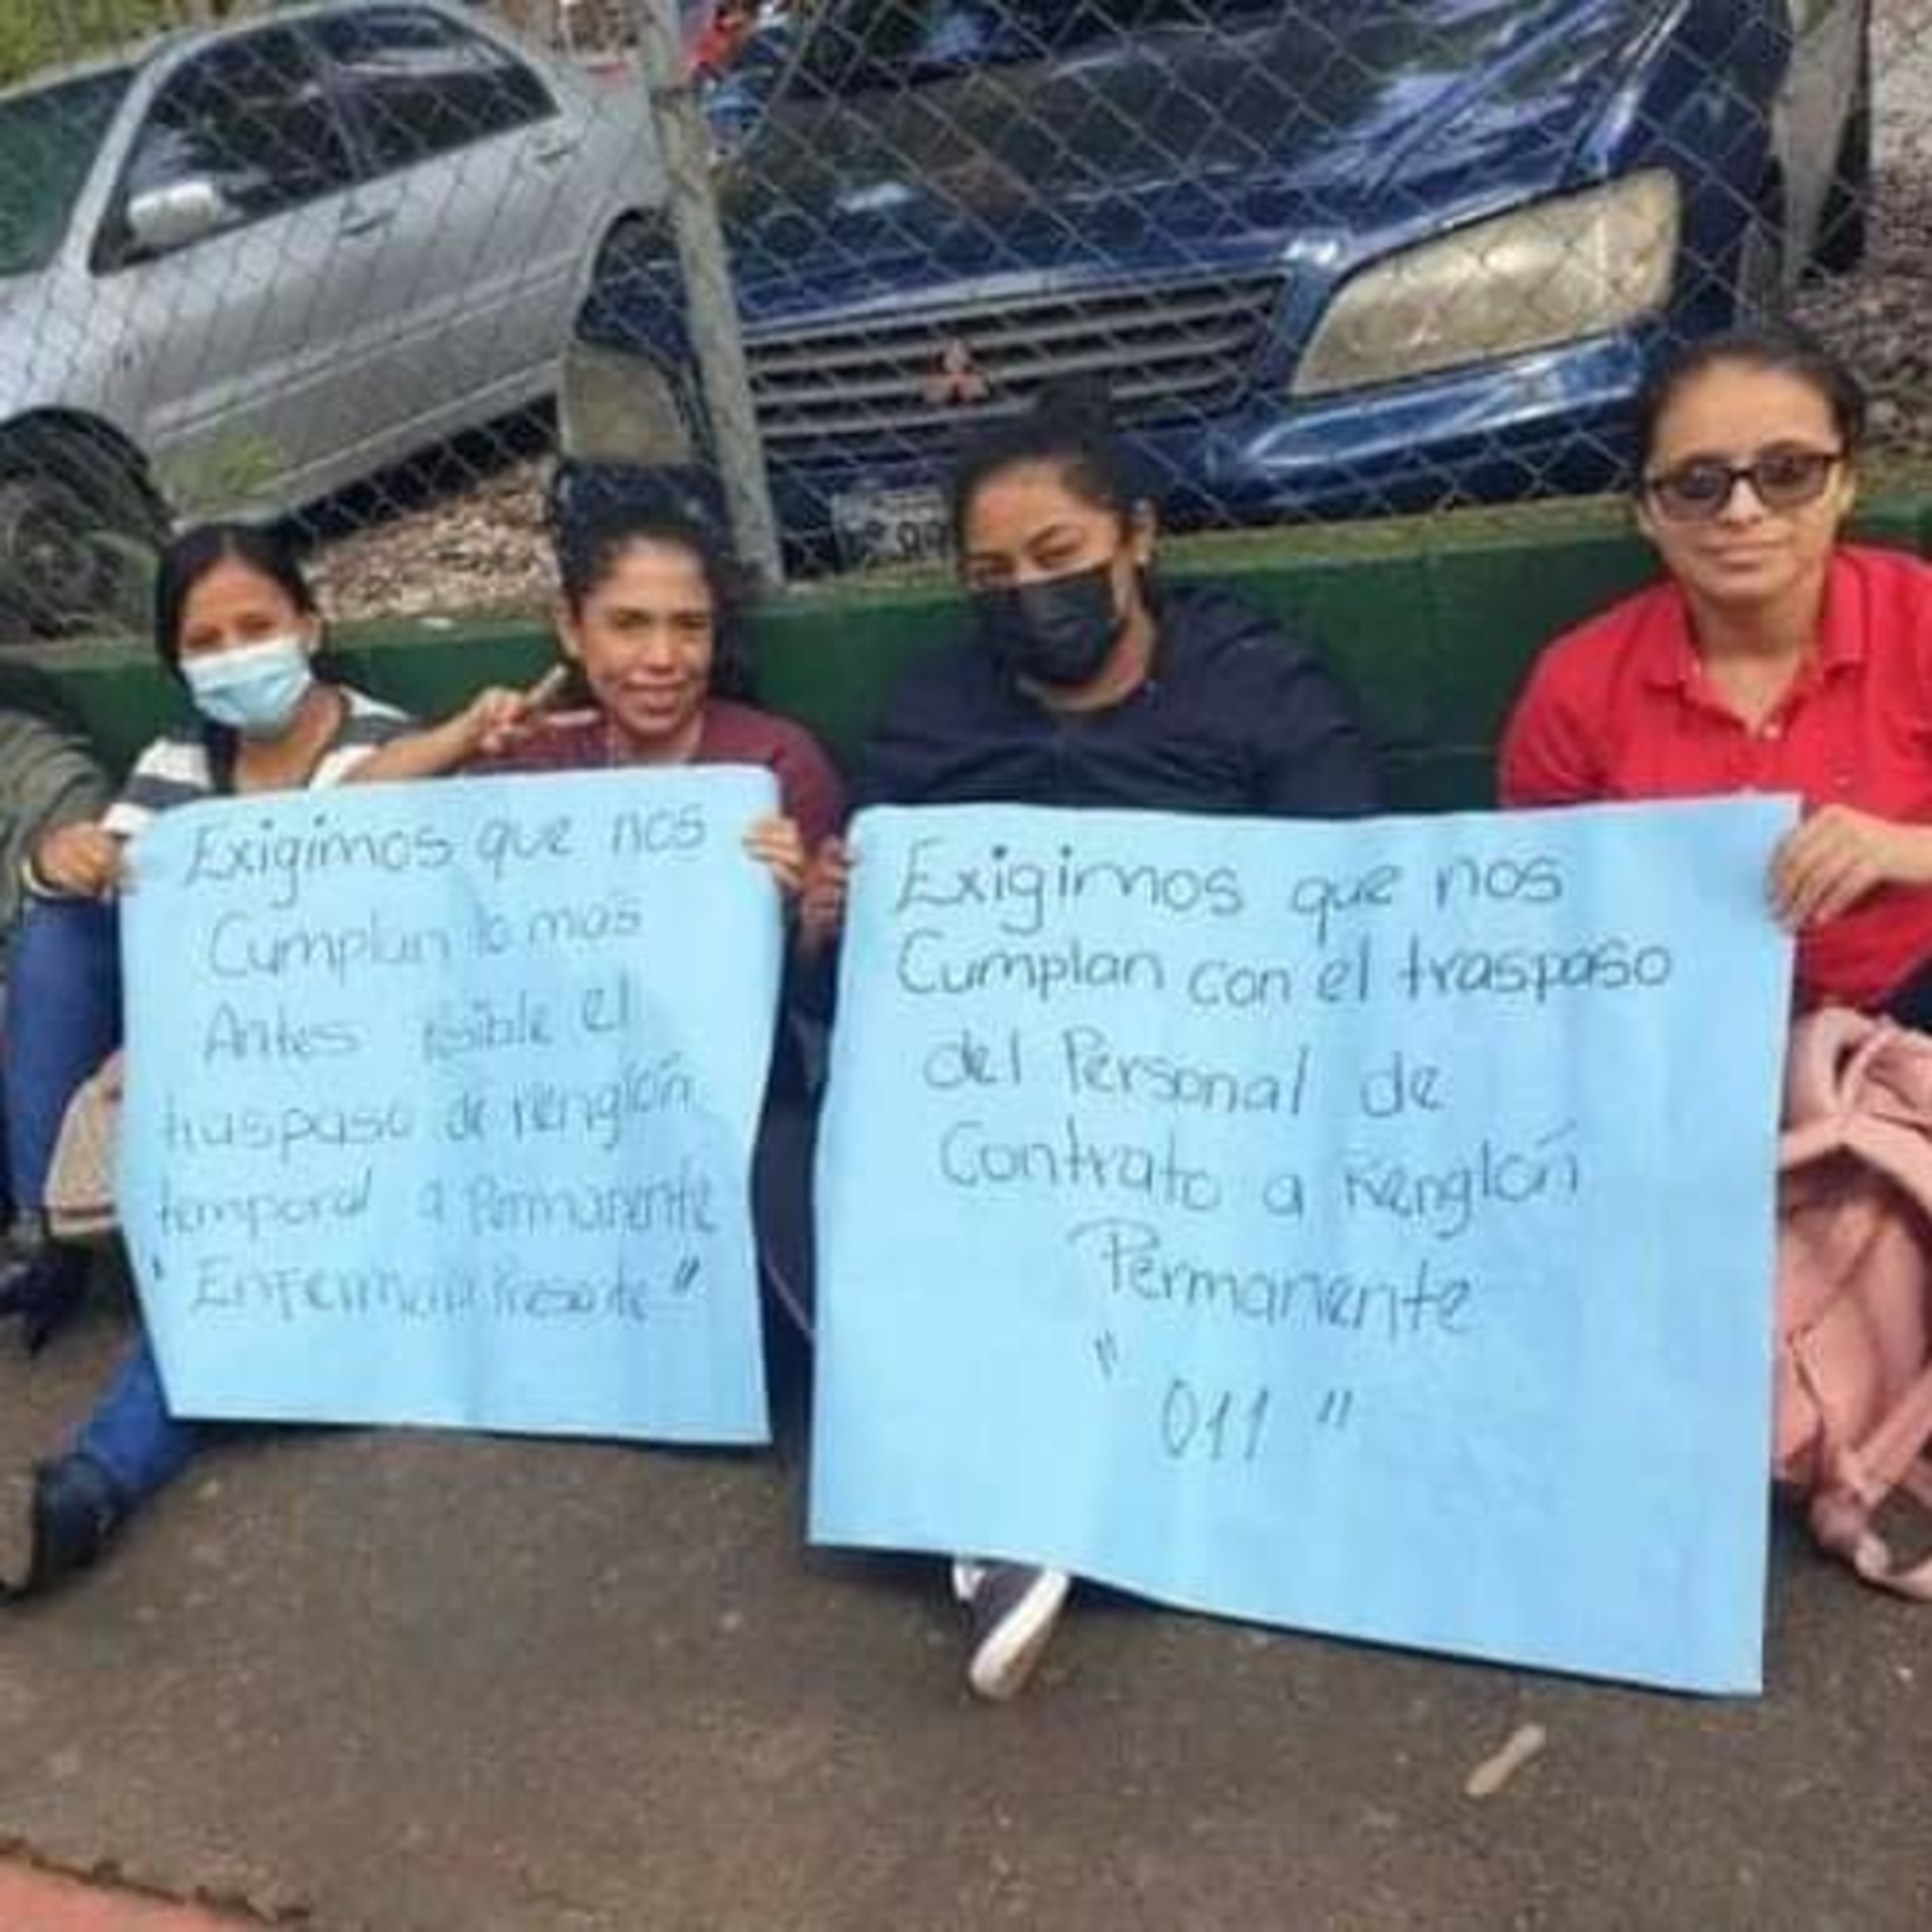 Exigimos que nos
Cumplan lo mas
Antes posible el
traspaso de renglón
temporal a Permanente
" Enfermería Presente "
Exigimos que nos
Cumplan con el traspaso
del Personal de
Contrato a renglón
Permanente
" 011 "